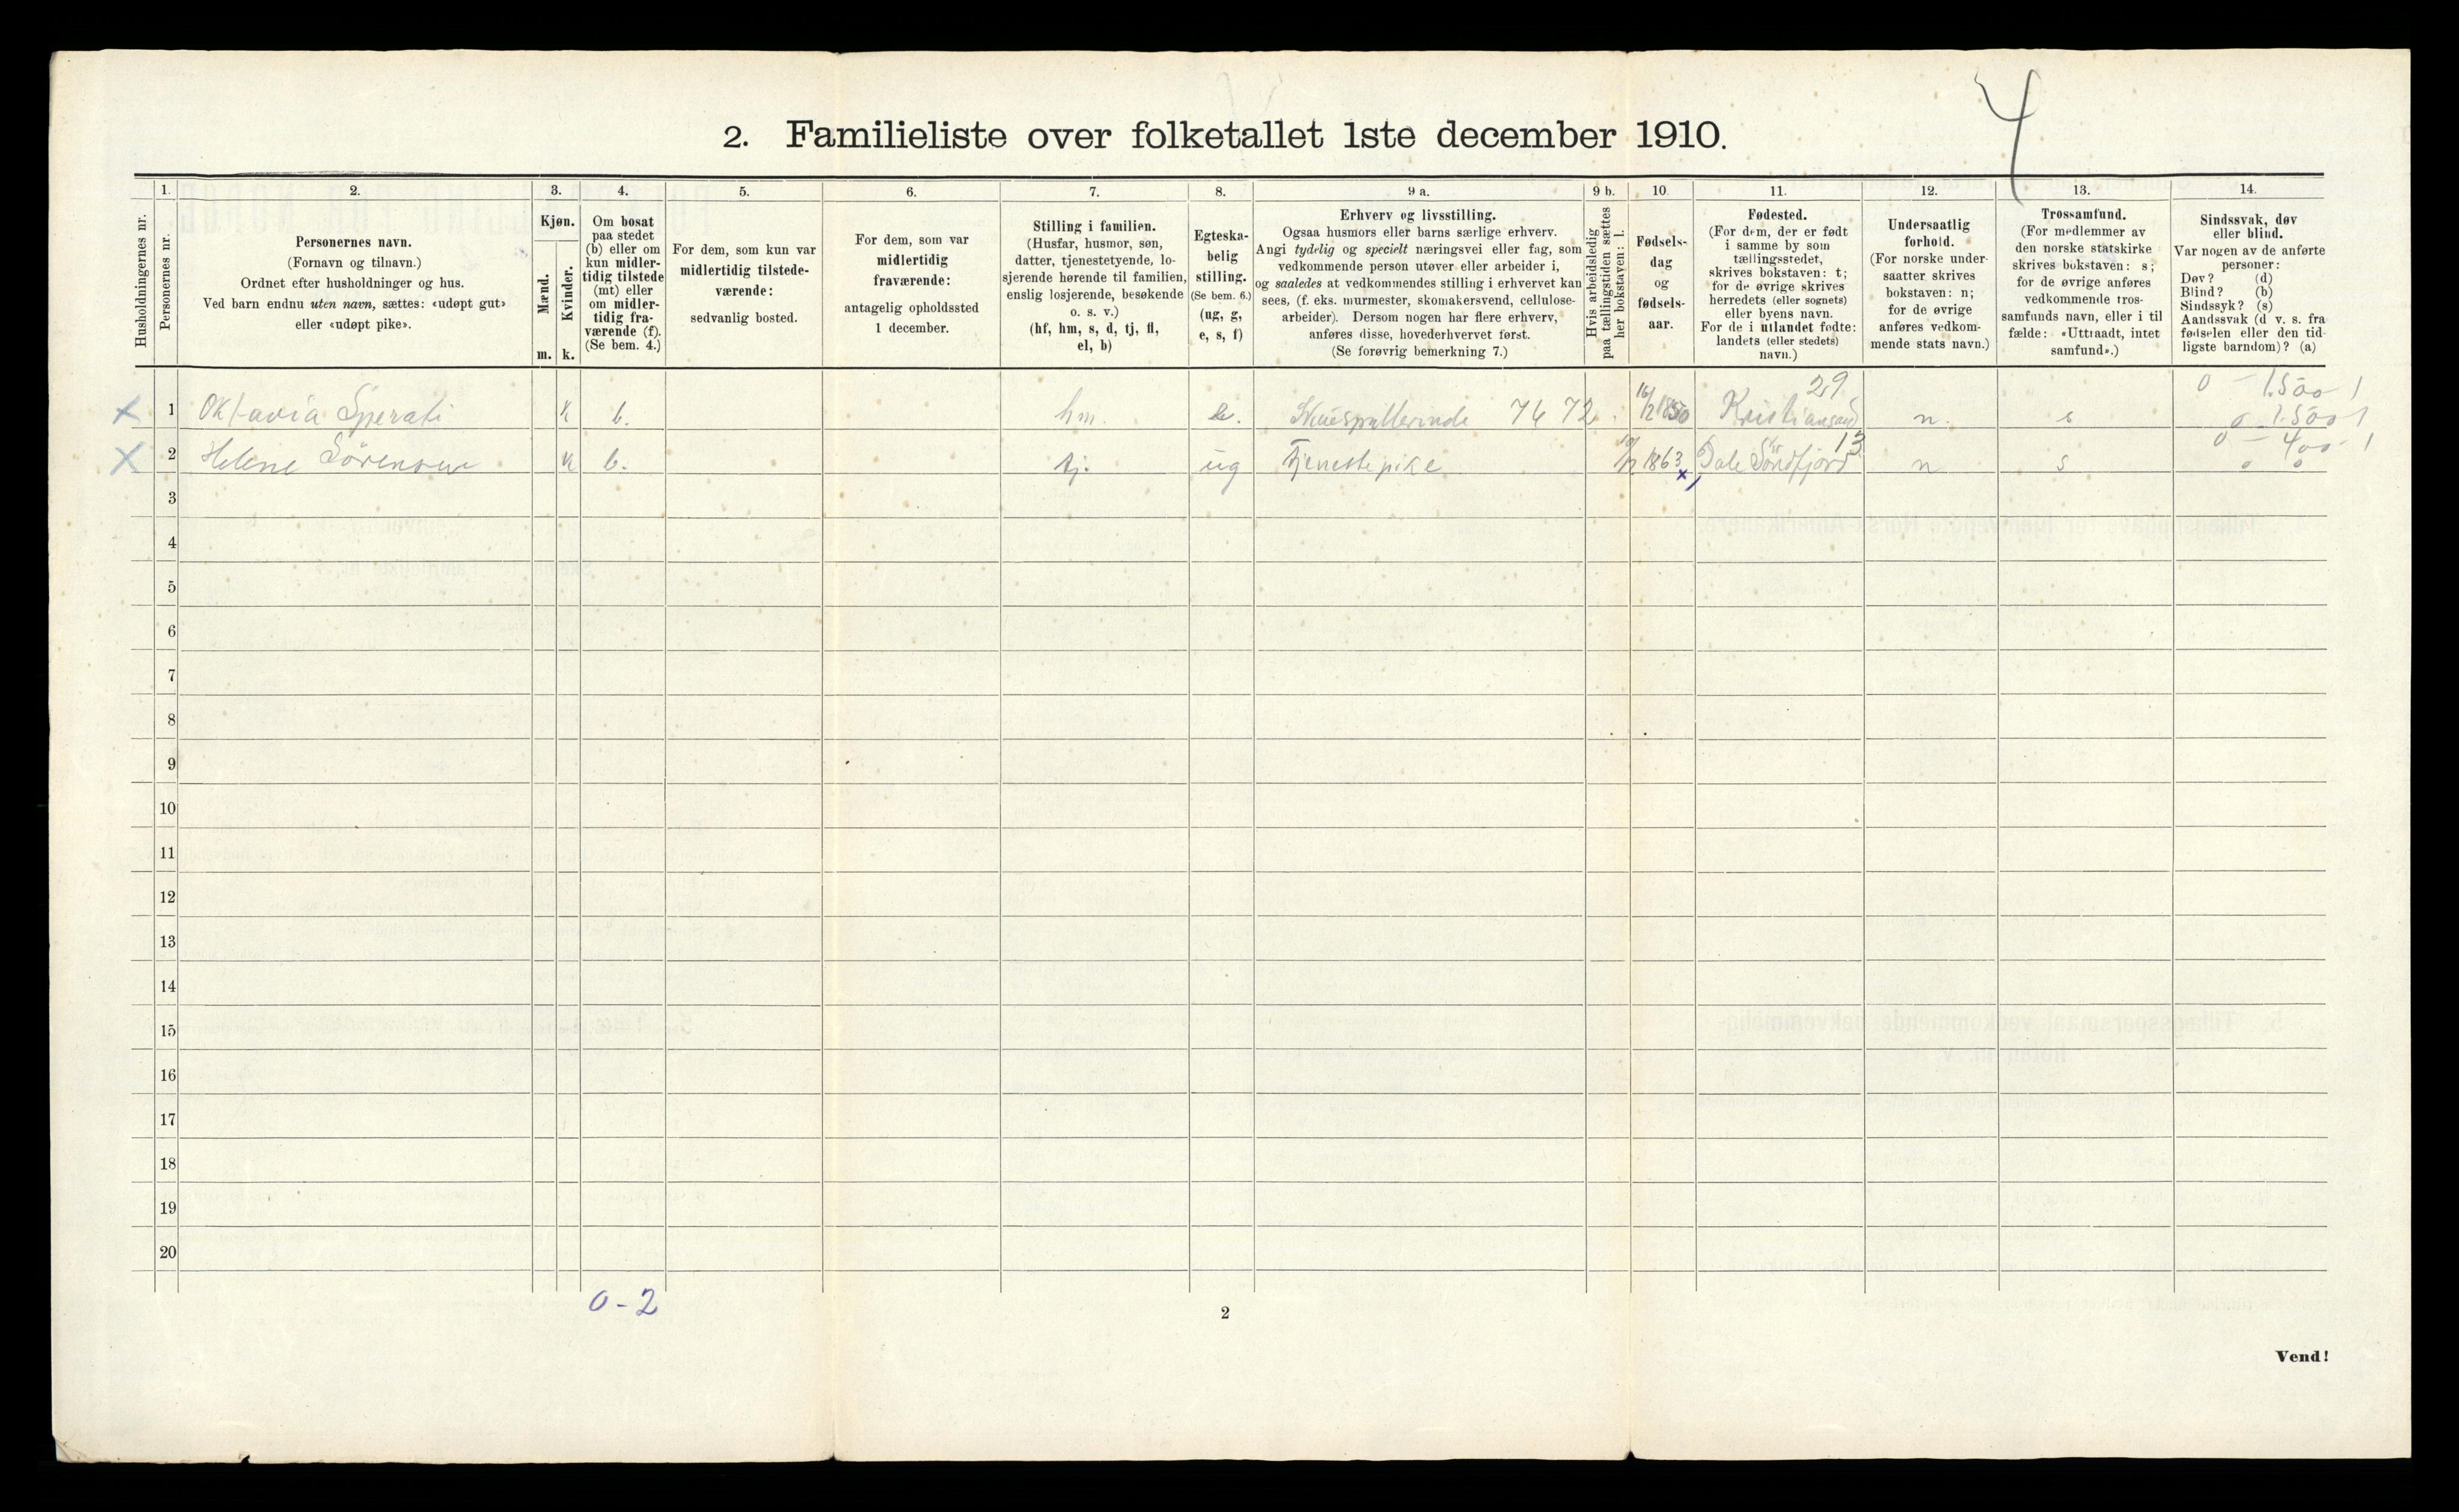 4
2. Familieliste over folketallet 1ste december 1910.
1. 2. 3. 4. 5. 6. 7. 8. 9 a. 9 b. 10. 11. 12. 13. 14.
Husholdningernes nr.
Personernes nr.
Personernes navn.
(Fornavn og tilnavn.)
Ordnet efter husholdninger og hus.
Ved barn endnu uten navn, sættes: «udøpt gut»
eller «udøpt pike».
Kjøn.
Mænd.
Kvinder.
m. k.
Om bosat
paa stedet
(b) eller om
kun midler-
tidig tilstede
(mt) eller
om midler-
tidig fra-
værende (f).
(Se bem. 4.)
For dem, som kun var
midlertidig tilstede-
værende:
sedvanlig bosted.
For dem, som var
midlertidig
fraværende:
antagelig opholdssted
1 december.
Stilling i familien.
(Husfar, husmor, søn,
datter, tjenestetyende, lo-
sjerende hørende til familien,
enslig losjerende, besøkende
o. s. v.)
(hf, hm, s, d, tj, fl,
el, b)
Egteska-
belig
stilling.
(Se bem. 6.)
(ug, g,
e, s, f)
Erhverv og livsstilling.
Ogsaa husmors eller barns særlige erhverv.
Angi tydelig og specielt næringsvei eller fag, som
vedkommende person utøver eller arbeider i,
og saaledes at vedkommendes stilling i erhvervet kan
sees, (f. eks. murmester, skomakersvend, cellulose-
arbeider). Dersom nogen har flere erhverv,
anføres disse, hovederhvervet først.
(Se forøvrig bemerkning 7.)
Hvis arbeidsledig
paa tællingstiden sættes
her bokstaven: l.
Fødsels-
dag
og
fødsels-
aar.
Fødested.
(For dem, der er født
i samme by som
tællingsstedet,
skrives bokstaven: t;
for de øvrige skrives
herredets (eller sognets)
eller byens navn.
For de i utlandet fødte:
landets (eller stedets)
navn.)
Undersaatlig
forhold.
(For norske under-
saatter skrives
bokstaven: n;
for de øvrige
anføres vedkom-
mende stats navn.)
Trossamfund.
(For medlemmer av
den norske statskirke
skrives bokstaven: s;
for de øvrige anføres
vedkommende tros-
samfunds navn, eller i til
fælde: «Uttraadt, intet
samfund».)
Sindssvak, døv
eller blind.
Var nogen av de anførte
personer:
Døv? (d)
Blind? (b)
Sindssyk? (s)
Aandssvak (d v. s. fra
fødselen eller den tid-
ligste barndom)? (a)
29 0 - 1.500 1
x 1 Oktavia Sperati k b. hm. e. Skuespillerinde 7672 16/2 1850 Kristiansand n. s 0 1.500 1
13 0 - 400 - 1
x 2 Helene Sörensen k b. tj. ug Tjenestepike 1863 Dale Söndfjord n s
3
4
5
6
7
8
9
10
11
12
13
14
15
16
17
18
19
20
0 - 2
2
Vend!